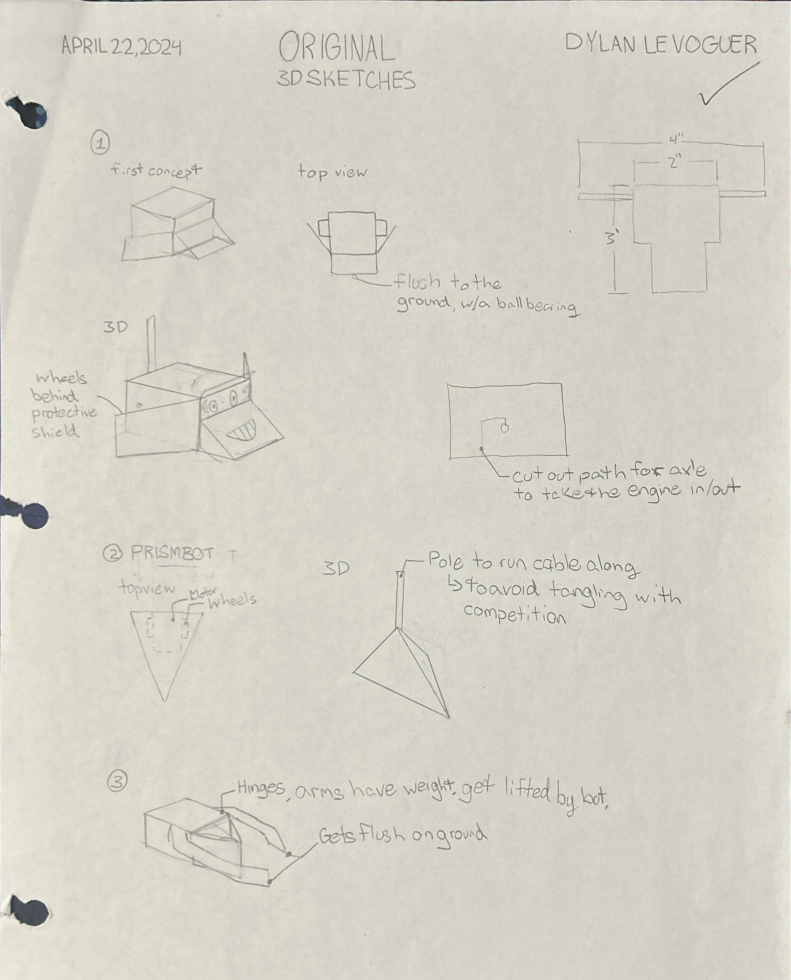 APRIL 22, 2024
ORIGINAL
3D SKETCHES
DYLAN LEVOGUER
1
first concept
top view
flush to the
ground, w/a ball bearing
4"
2"
3"
3D
wheels
behind
protective
shield
cut out path for axle
to take the engine in/out
2 PRISMBOT
topview
Motor
Wheels
3D
Pole to run cable along
↳ to avoid tangling with
competition
3
Hinges, arms have weight, get lifted by bot,
Gets flush on ground